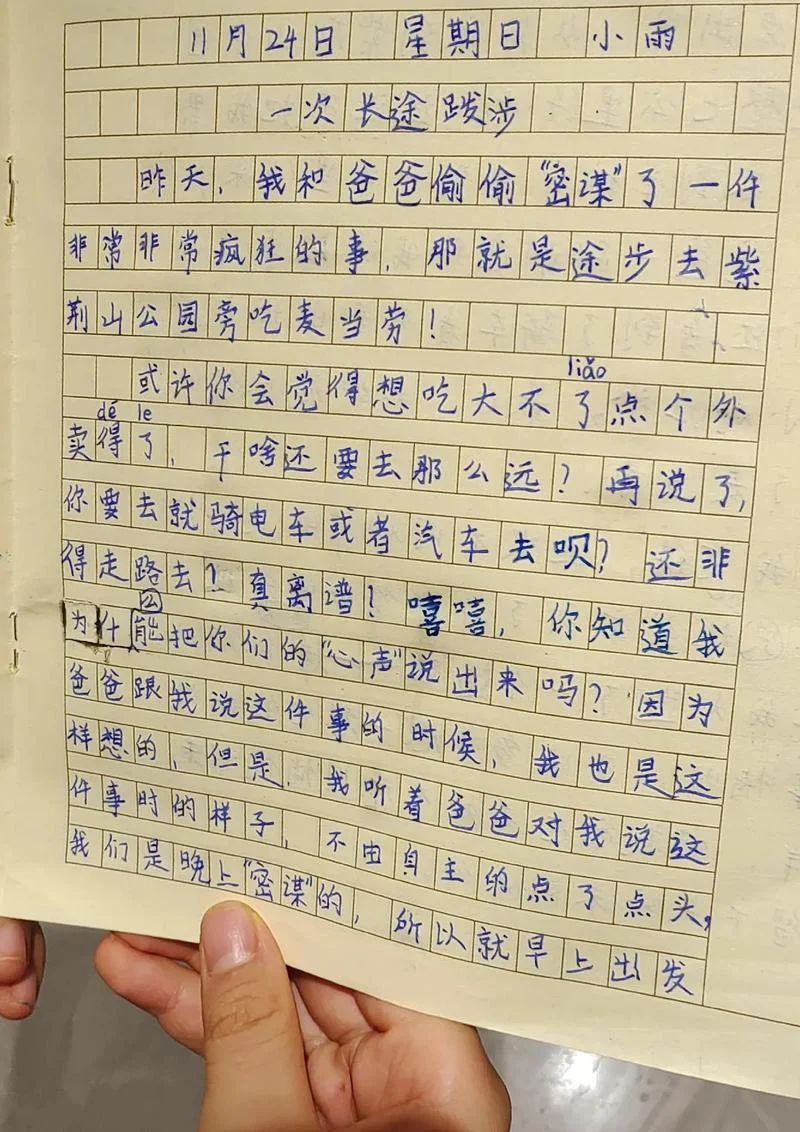 11月24日 星期日 小雨
一次长途跋涉
昨天，我和爸爸偷偷“密谋”了一件
非常非常疯狂的事，那就是途步去紫
荆山公园旁吃麦当劳！
liǎo
或许你会觉得想吃大不了点个外
dé le
卖得了，干啥还要去那么远？再说了，
你要去就骑电车或者汽车去呗？还非
得走路去！真离谱！嘻嘻，你知道我
为什能把你们的“心声”说出来吗？因为
爸爸跟我说这件事的时候，我也是这
样想的，但是，我听着爸爸对我说这
件事时的样子，不由自主的点了点头，
我们是晚上“密谋”的，所以就早上出发